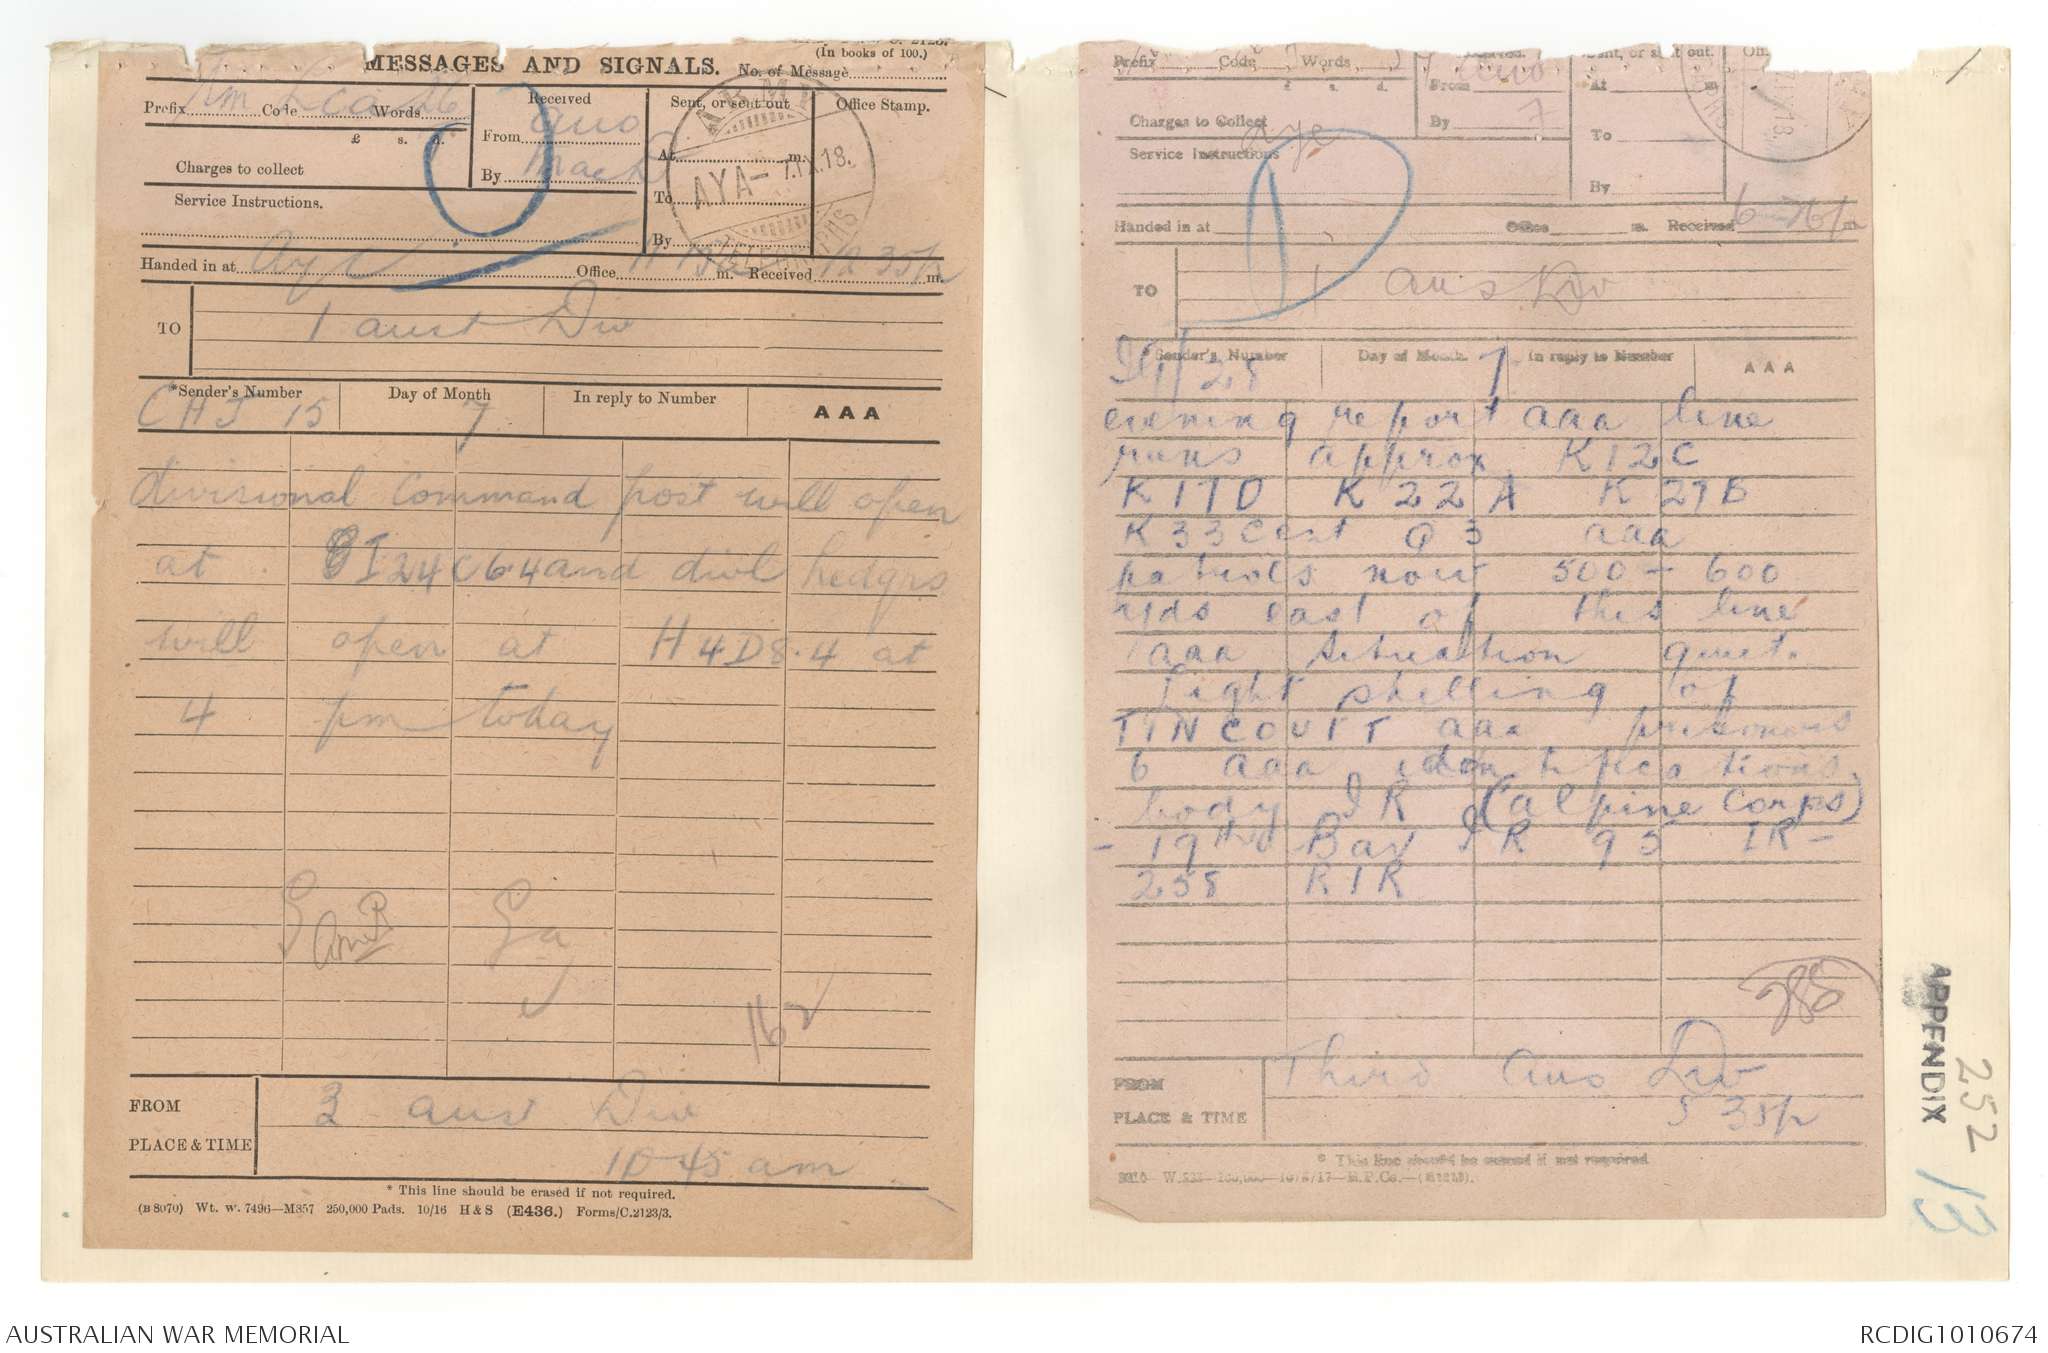 (In books of 100.)
MESSAGES AND SIGNALS. No. of Message
Prefix Sm Code Words 26
£ s. d.
Charges to collect
Service Instructions.
Received
From
By
Sent, or sent out
At m.
To
By
Office Stamp.
ARMY
AYA- 7.IX.18.
TELEGRAPHS
Handed in at Office m. Received 12 35p m.
TO
1 aust Div
*Sender's Number
Day of Month
In reply to Number
AAA
15 7
divisional command post will open
at I24C6.4 and divl hedqrs
will open at H4D8.4 at
4 pm today
FROM
PLACE & TIME
3 aust Div
10 45 am
* This line should be erased if not required.
(B 8070) Wt. W. 7496—M857 250,000 Pads. 10/16 H & S (E436.) Forms/C.2123/3.
Prefix Code Words
£ s. d.
Charges to Collect
Service Instructions
aye
From
By 7
Sent, or sent out.
At m
To
By
Handed in at Office m. Received m.
TO
1 aus Div
Sender's Number
Day of Month 7
In reply to Number
AAA
evening report aaa line
runs approx K12C
K17D K22A K27B
K33Cent Q3 aaa
patrols now 500 - 600
yds east of this line
aaa situation quiet.
Light shelling of
TINCOURT aaa prisoners
6 aaa identifications
body IR (alpine Corps)
- 19th Bav IR 95 IR -
258 RIR
FROM
PLACE & TIME
Third Aus Div
5 35p
* This line should be erased if not required.
APPENDIX
252
13
AUSTRALIAN WAR MEMORIAL
RCDIG1010674